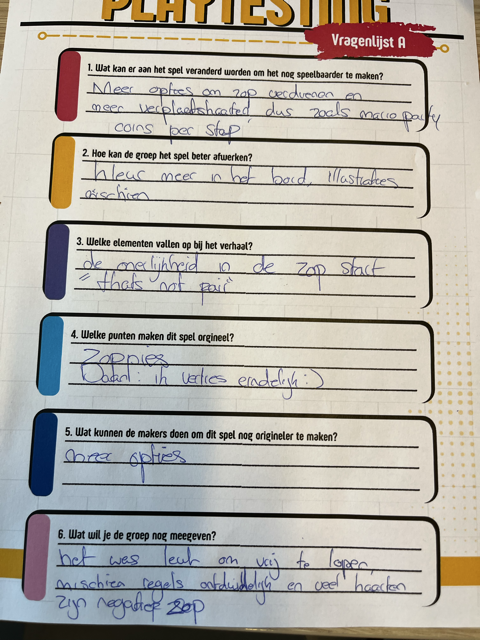 PLAYTESTING
Vragenlijst A
1. Wat kan er aan het spel veranderd worden om het nog speelbaarder te maken?
Meer opties om zop verdienen en
meer verplaatsbaarheid, dus zoals mario party
coins per stap
2. Hoe kan de groep het spel beter afwerken?
kleur meer in het bord, illustraties
misschien
3. Welke elementen vallen op bij het verhaal?
de oneerlijkheid in de zop start
"thats not fair"
4. Welke punten maken dit spel orgineel?
Zopnies
: ik verlies eindelijk :)
5. Wat kunnen de makers doen om dit spel nog origineler te maken?
meer opties
6. Wat wil je de groep nog meegeven?
het was leuk om vrij te lopen,
mischien regels onduidelijk en veel kaarten
zijn negatief zop